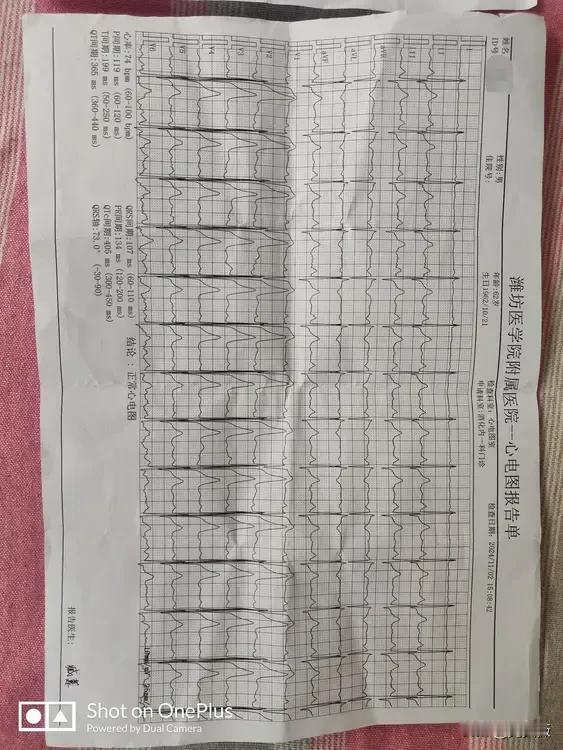 潍坊医学院附属医院—心电图报告单
姓名:
性别:男
年龄:62岁
检查科室: 心电图室
检查日期: 2024/11/02 15:08:42
ID号
住院号:
生日1962/10/21
申请科室:消化内一科门诊
I
II
III
aVR
aVL
aVF
V1
V2
V3
V4
V5
V6
心率:74 bpm (60-100 bpm)
P间期:119 ms (60-120 ms)
T间期:199 ms (50-250 ms)
QT间期:365 ms (360-440 ms)
QRS间期:107 ms (60-110 ms)
PR间期:134 ms (120-200 ms)
QTc间期:405 ms (300-450 ms)
QRS轴:73.0° (-30-90)
结论: 正常心电图
报告医生:
Shot on OnePlus
Powered by Dual Camera